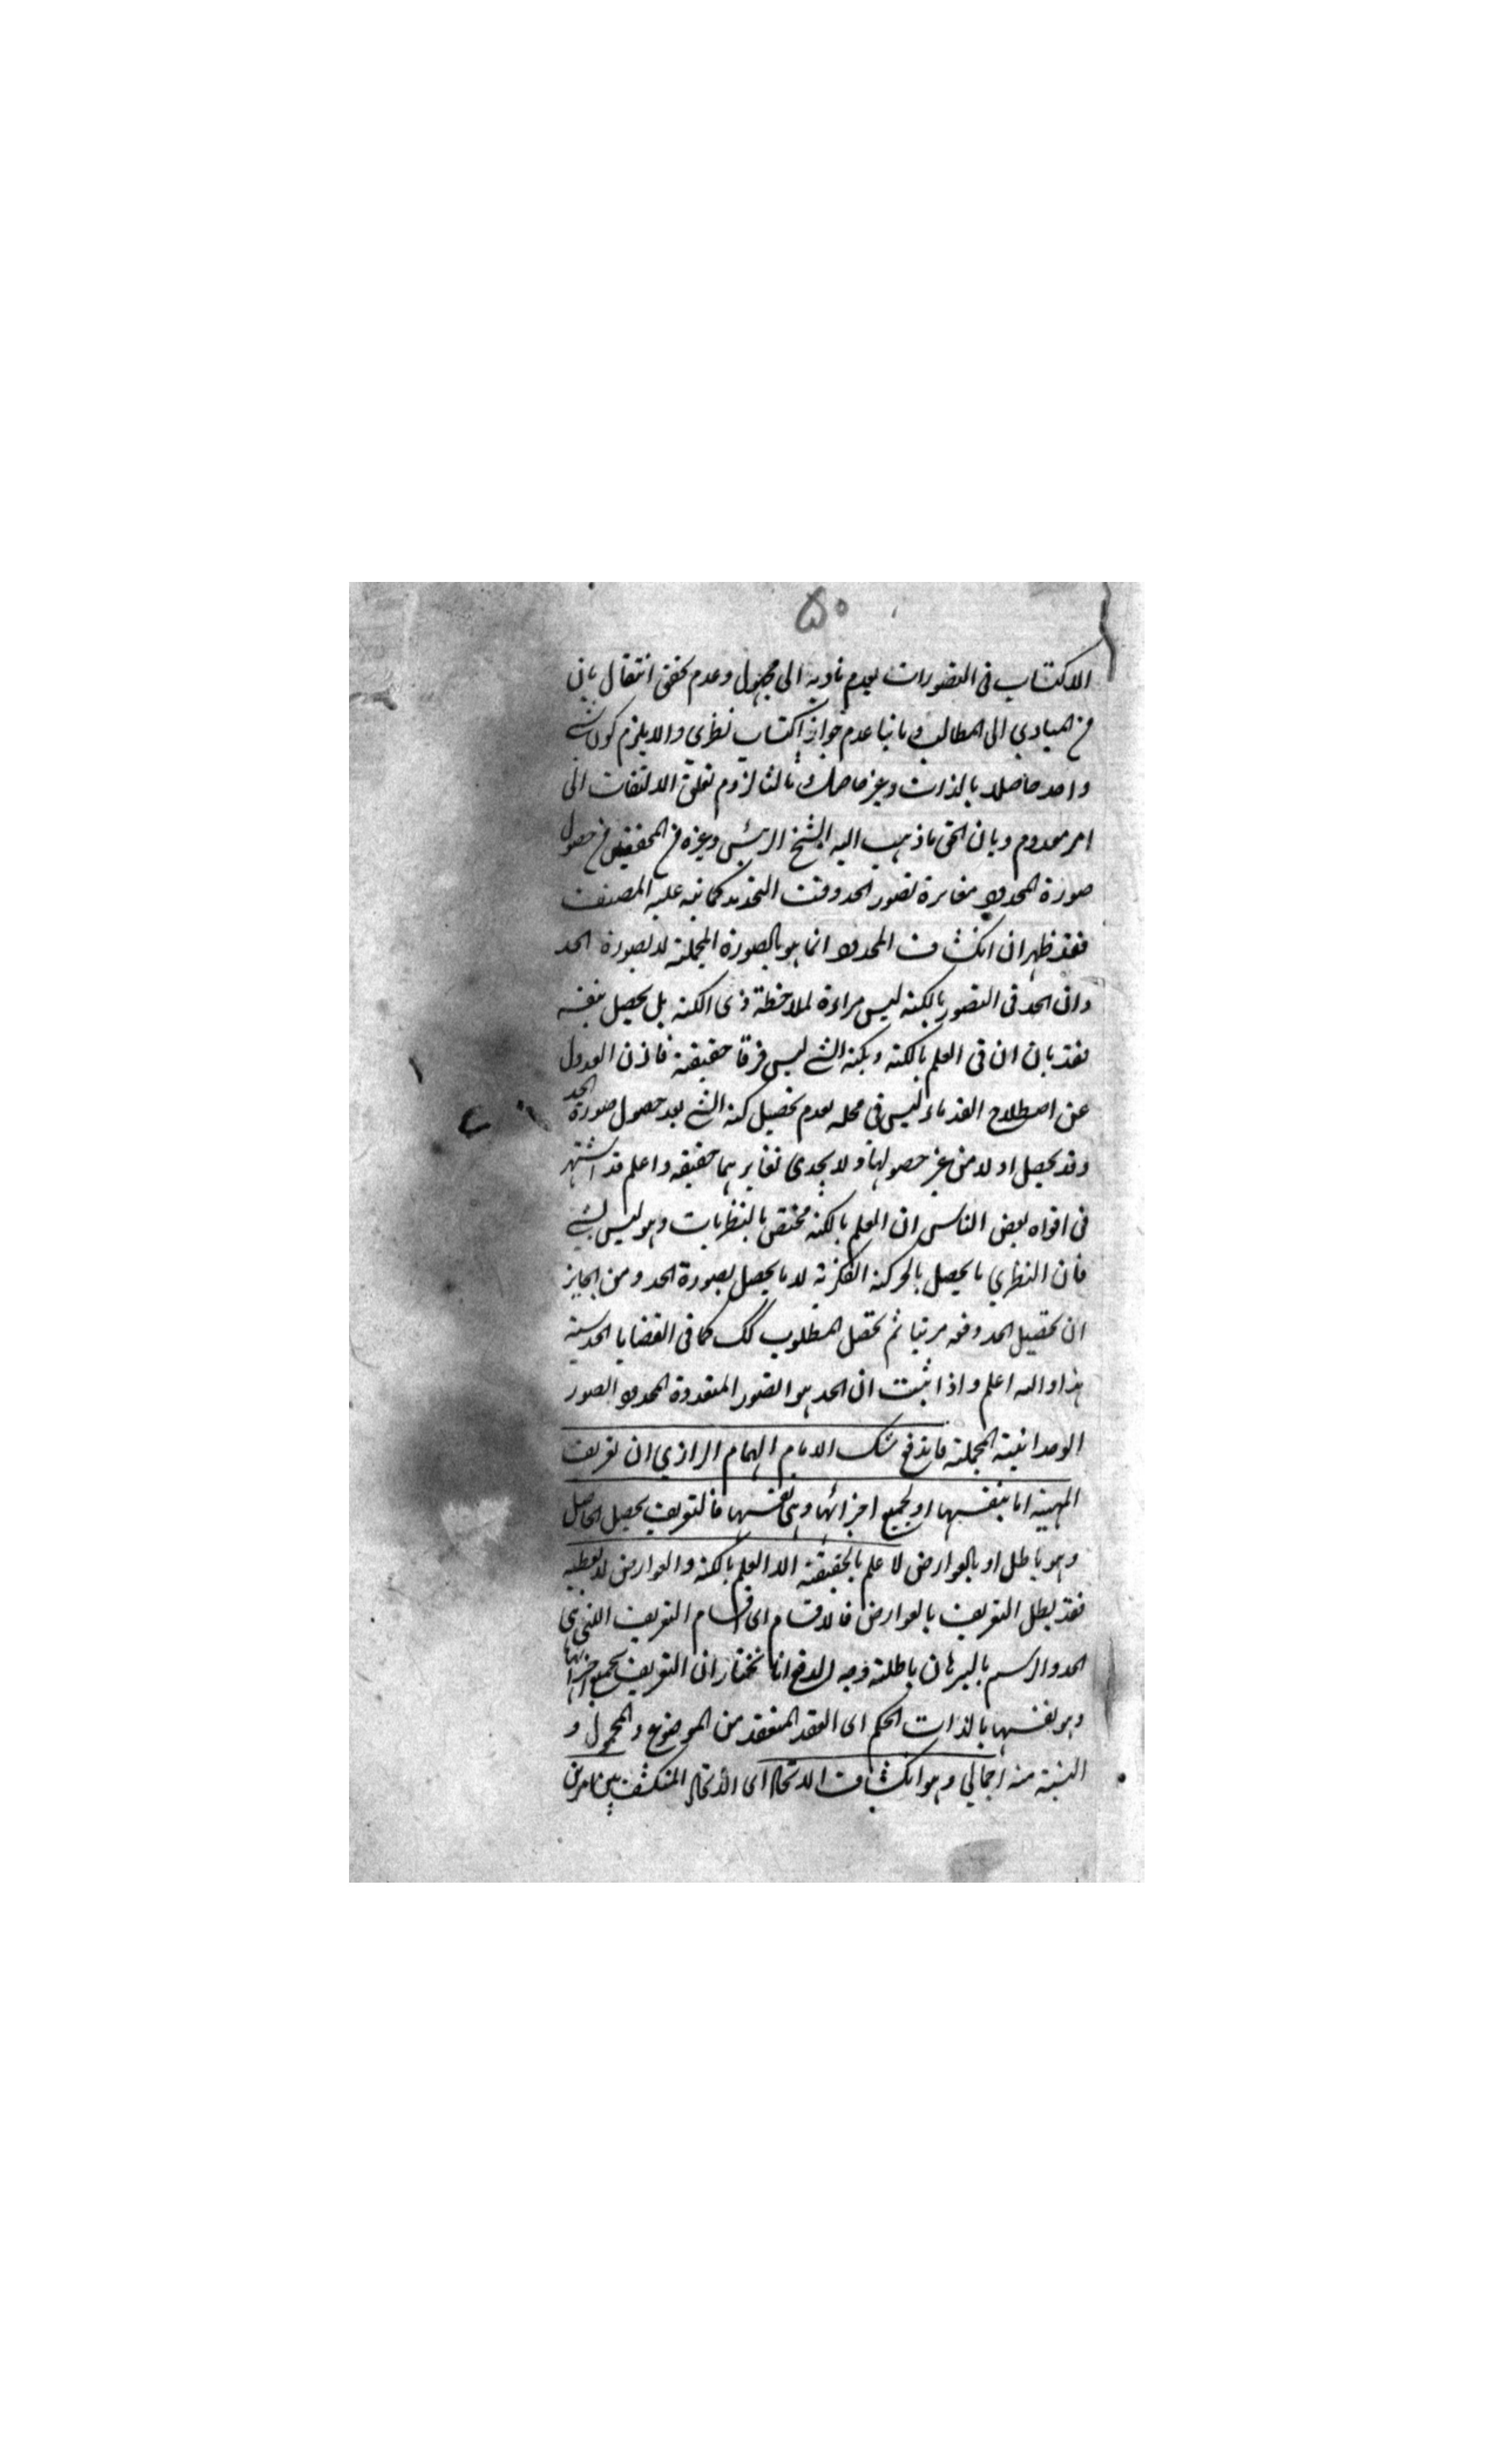 ۵۰
الاكتساب فى التصورات لعدم تاديه الى مجهول وعدم تحقق انتقال بان
من المبادي الى المطالب وثانيا عدم جواز اكتساب نظرى والا يلزم كون شے
واحد حاصلا بالذات وغير حاصل وثالثا لزوم تعلق الالتفات الى
امر معدوم وبان الحق ما ذهب اليه الشيخ الرئيس وغيره من المحققين من حصول
صورة المحدود مغائرة تصور الحد وقت التحديد كما نبه عليه المصنف
فقد ظهر ان انكشاف المحدود انما هو بالصورة المجملة لا بصورة الحد
وان الحد فى التصور بالكنه ليس مراءة لملاحظة ذى الكنه بل يحصل بنفسه
فقد بان ان فى العلم بالكنه وبكنه الشے ليس فرقا حقيقة فاذن العدول
عن اصطلاح القدماء ليس فى محله لعدم تحصيل كنه الشے بعد حصول صورة الحد
وقد يحصل اولا من غير حصولها ولا يجدى تغايرهما حقيقه واعلم قد اشتهر
فى افواه بعض الناس ان العلم بالكنه مختص بالنظريات وهو ليس بشے
فان النظري ما يحصل بالحركة الفكرية لا ما يحصل بصورة الحد ومن الجايز
ان تحصيل الحد دفعه مرتبا ثم تحصل المطلوب كك كما فى القضايا الحدسية
هذا والله اعلم واذا ثبت ان الحد هو الصور المتعددة المحدود الصور
الوحدانية المجملة فاندفع شك الامام الهمام الرازي ان تعريف
المهية اما بنفسها او بجميع اجزائها وهى نفسها فالتعريف يحصل الحاصل
وهو باطل او بالعوارض لا علم بالحقيقة الا العلم بالكنه والعوارض لا يعطيه
فقد بطل التعريف بالعوارض فالاقسام اى اقسام التعريف اللتى هى
الحد والرسم بالبرهان باطلة وجه الدفع انا نختار ان التعريف بجميع اجزائها
وهو نفسها بالذات الحكم اى العقد المنعقد من الموضوع والمحمول و
النسبة منه اجمالي وهو انكشاف الاتحاد اى الاتحاد المنكشف بين امرين